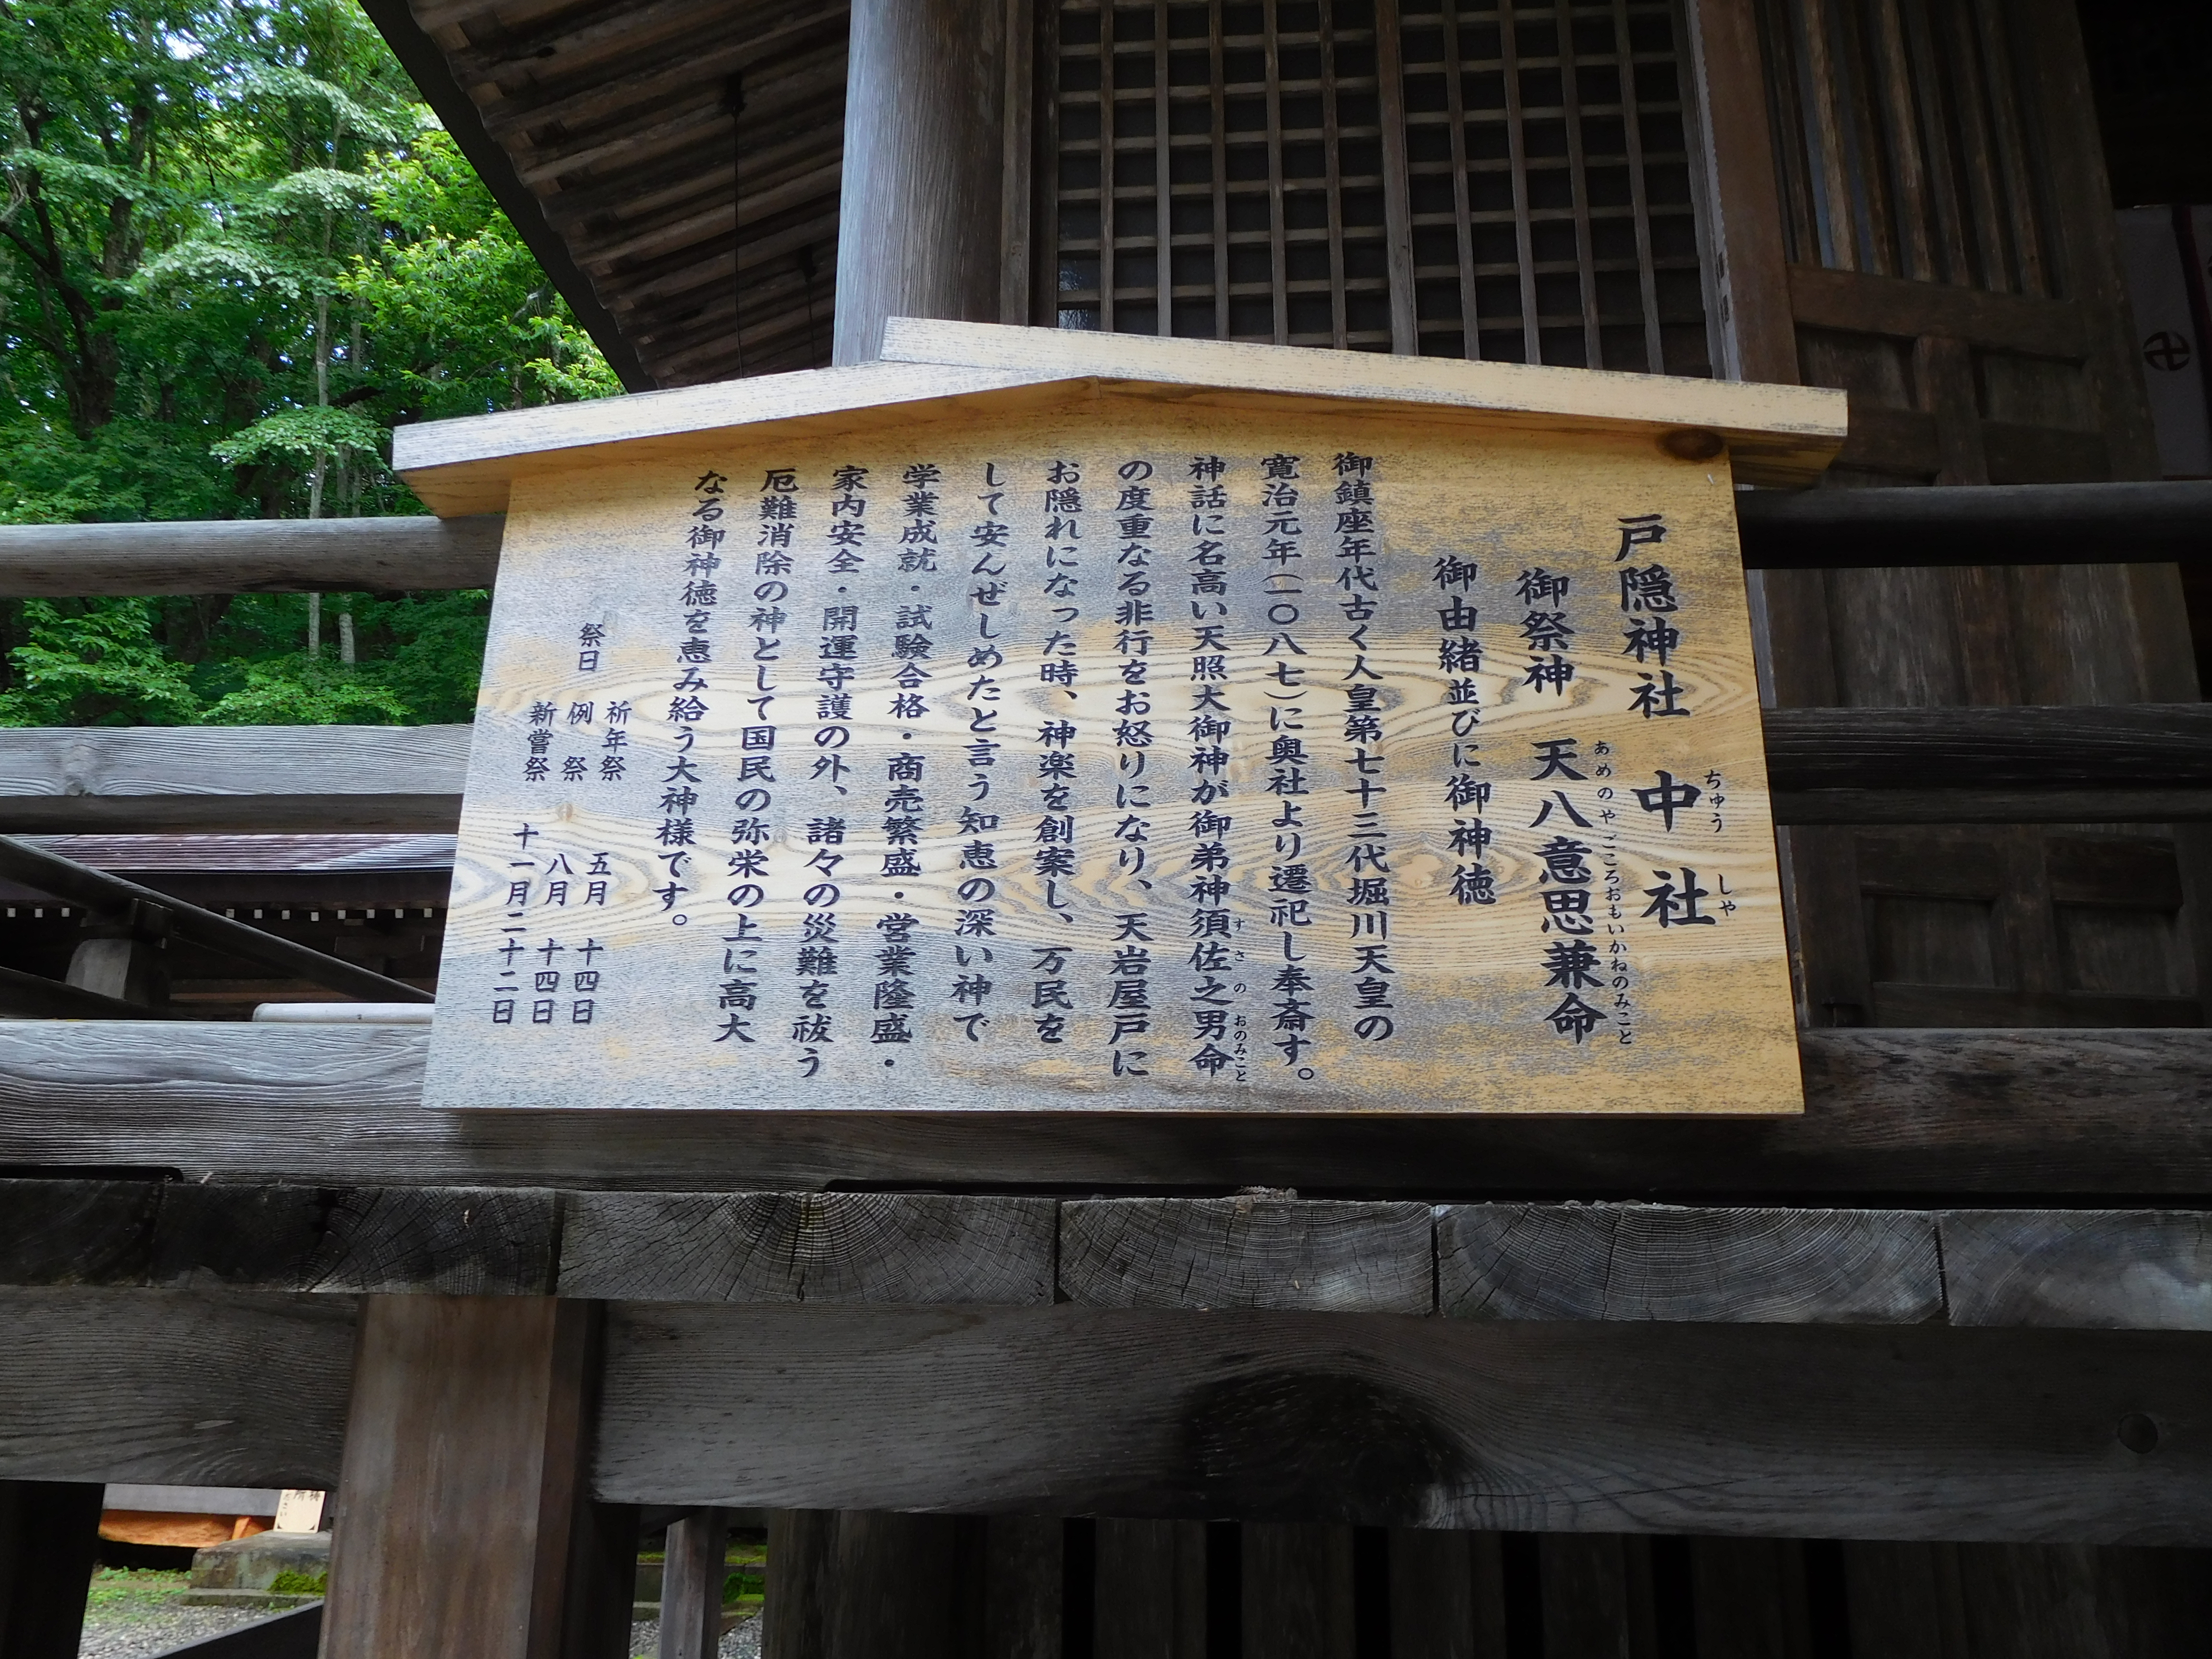 戸隠神社 中社
ちゅう しや
御祭神 天八意思兼命
あめのやごころおもいかねのみこと
御由緒並びに御神徳
御鎮座年代古く人皇第七十三代堀川天皇の
寛治元年(一〇八七)に奥社より遷祀し奉斎す。
神話に名高い天照大御神が御弟神須佐之男命
すさのおのみこと
の度重なる非行をお怒りになり、天岩屋戸に
お隠れになった時、神楽を創案し、万民を
して安んぜしめたと言う知恵の深い神で
学業成就・試験合格・商売繁盛・営業隆盛・
家内安全・開運守護の外、諸々の災難を祓う
厄難消除の神として国民の弥栄の上に高大
なる御神徳を恵み給う大神様です。
祈年祭 五月 十四日
祭日 例祭 八月 十四日
新嘗祭 十一月二十二日